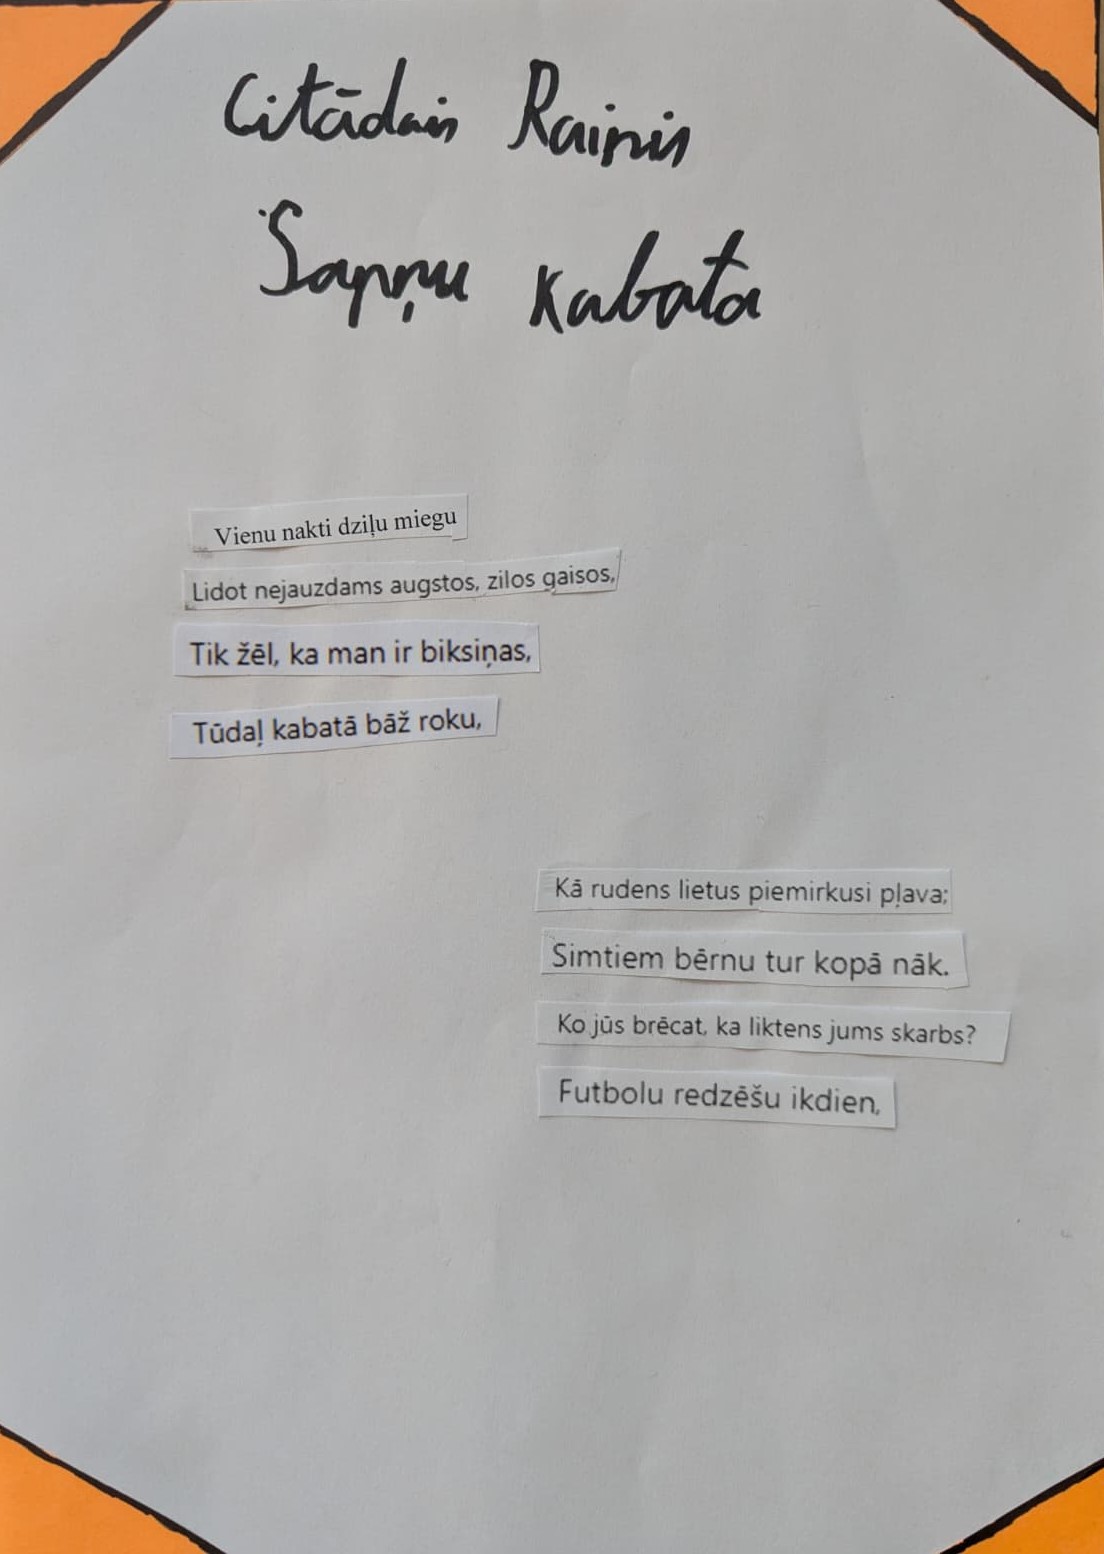 Citādais Rainis
Sapņu kabata
Vienu nakti dziļu miegu
Lidot nejauzdams augstos, zilos gaisos,
Tik žēl, ka man ir biksiņas,
Tūdaļ kabatā bāž roku,
Kā rudens lietus piemirkusi pļava;
Simtiem bērnu tur kopā nāk.
Ko jūs brēcat, ka liktens jums skarbs?
Futbolu redzēšu ikdien,